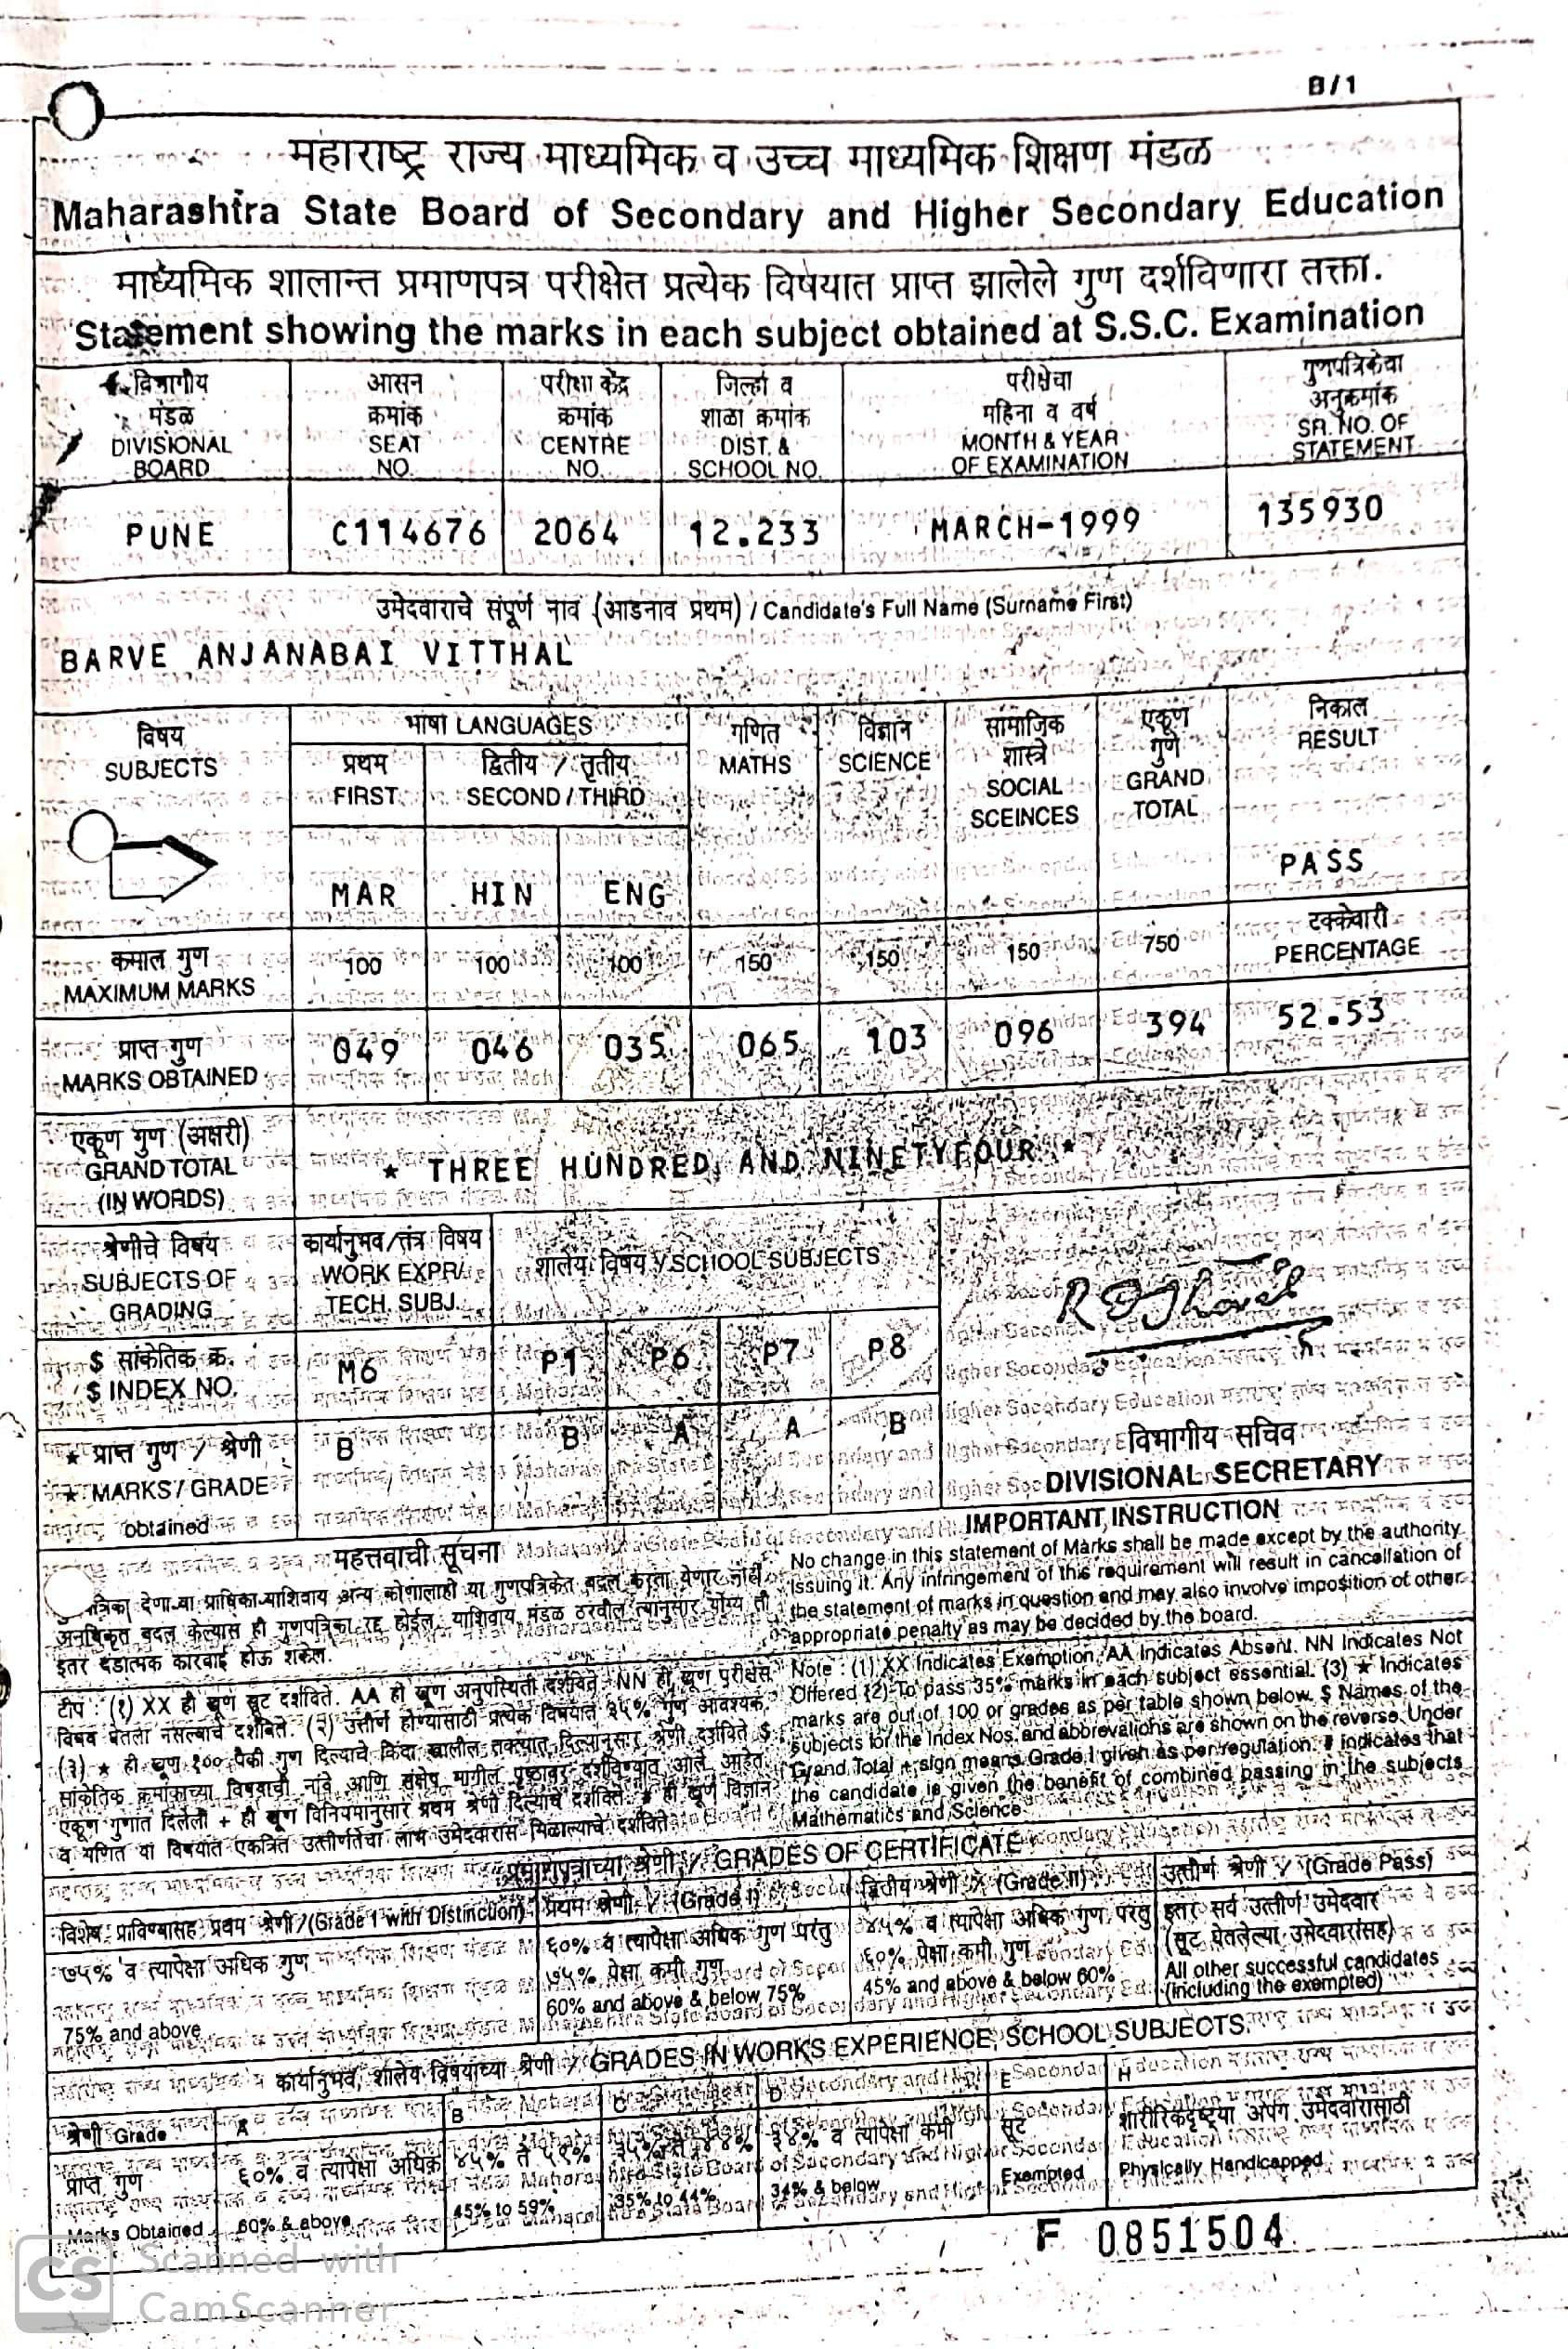 B/1
महाराष्ट्र राज्य माध्यमिक व उच्च माध्यमिक शिक्षण मंडळ
Maharashtra State Board of Secondary and Higher Secondary Education
माध्यमिक शालान्त प्रमाणपत्र परीक्षेत प्रत्येक विषयात प्राप्त झालेले गुण दर्शविणारा तक्ता.
Statement showing the marks in each subject obtained at S.S.C. Examination
विभागीय मंडळ DIVISIONAL BOARD
आसन क्रमांक SEAT NO.
परीक्षा केंद्र क्रमांक CENTRE NO.
जिल्हा व शाळा क्रमांक DIST. & SCHOOL NO.
परीक्षेचा महिना व वर्ष MONTH & YEAR OF EXAMINATION
गुणपत्रिकेचा अनुक्रमांक SR. NO. OF STATEMENT
PUNE C114676 2064 12.233 MARCH-1999 135930
उमेदवाराचे संपूर्ण नाव (आडनाव प्रथम) / Candidate's Full Name (Surname First)
BARVE ANJANABAI VITTHAL
विषय SUBJECTS
भाषा LANGUAGES
प्रथम FIRST
द्वितीय / तृतीय SECOND / THIRD
गणित MATHS
विज्ञान SCIENCE
सामाजिक शास्त्रे SOCIAL SCEINCES
एकूण गुण GRAND TOTAL
निकाल RESULT
MAR HIN ENG PASS
कमाल गुण MAXIMUM MARKS 100 100 100 150 150 150 750
टक्केवारी PERCENTAGE
प्राप्त गुण MARKS OBTAINED 049 046 035 065 103 096 394 52.53
एकूण गुण (अक्षरी) GRAND TOTAL (IN WORDS)
* THREE HUNDRED AND NINETYFOUR *
श्रेणीचे विषय SUBJECTS OF GRADING
कार्यानुभव/तंत्र विषय WORK EXPR/ TECH. SUBJ.
शालेय विषय / SCHOOL SUBJECTS
$ सांकेतिक क्र. $ INDEX NO. M6 P1 P6 P7 P8
★ प्राप्त गुण / श्रेणी ★ MARKS / GRADE obtained B B A A B
विभागीय सचिव
DIVISIONAL SECRETARY
महत्तवाची सूचना
IMPORTANT INSTRUCTION
No change in this statement of Marks shall be made except by the authority
issuing it. Any infringement of this requirement will result in cancellation of
the statement of marks in question and may also involve imposition of other
appropriate penalty as may be decided by the board.
अनधिकृत बदल केल्यास ही गुणपत्रिका रद्द होईल. याशिवाय मंडळ ठरवील त्यानुसार योग्य ती
इतर दंडात्मक कारवाई होऊ शकेल.
Note : (1) XX Indicates Exemption, AA Indicates Absent. NN Indicates Not
Offered (2) To pass 35% marks in each subject essential. (3) ★ Indicates
marks are out of 100 or grades as per table shown below. $ Names of the
subjects for the Index Nos. and abbrevations are shown on the reverse. Under
Grand Total + sign means Grade I given as per regulation. # indicates that
the candidate is given the benefit of combined passing in the subjects
Mathematics and Science
प्रमाणपत्राच्या श्रेणी / GRADES OF CERTIFICATE
विशेष प्राविण्यासह प्रथम श्रेणी/(Grade I with Distinction)
प्रथम श्रेणी / (Grade I)
द्वितीय श्रेणी / (Grade II)
उत्तीर्ण श्रेणी / (Grade Pass)
७५% व त्यापेक्षा अधिक गुण
75% and above
६०% व त्यापेक्षा अधिक गुण परंतु
७५% पेक्षा कमी गुण
60% and above & below 75%
४५% व त्यापेक्षा अधिक गुण परंतु
६०% पेक्षा कमी गुण
45% and above & below 60%
इतर सर्व उत्तीर्ण उमेदवार
(सूट घेतलेल्या उमेदवारांसह)
All other successful candidates
(including the exempted)
कार्यानुभव, शालेय विषयाच्या श्रेणी / GRADES IN WORKS EXPERIENCE, SCHOOL SUBJECTS.
श्रेणी Grade A B C D E H
प्राप्त गुण
Marks Obtained
६०% व त्यापेक्षा अधिक
60% & above
४५% ते ५९%
45% to 59%
३५% ते ४४%
35% to 44%
३४% व त्यापेक्षा कमी
34% & below
सूट
Exempted
शारीरिकदृष्ट्या अपंग उमेदवारासाठी
Physically Handicapped
F 0851504
CS Scanned with
CamScanner